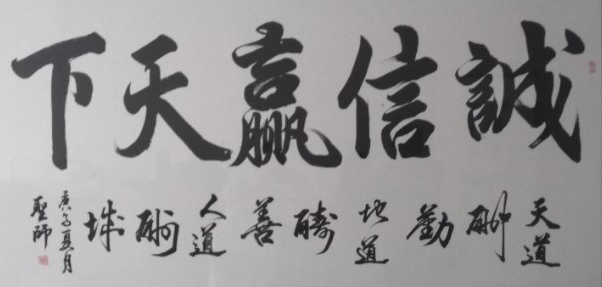 誠信贏天下
天道酬勤地道酬善人道酬誠
庚子夏月
聖師